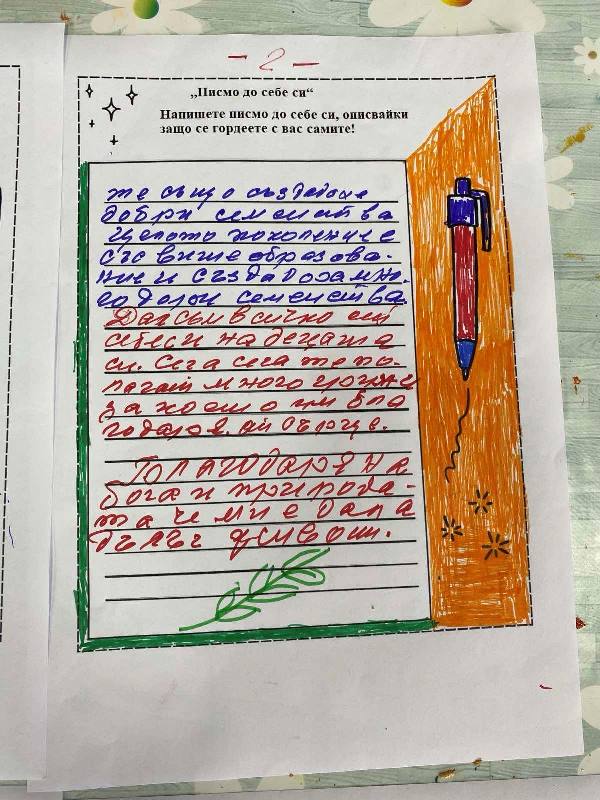 - 2 -
„Писмо до себе си“
Напишете писмо до себе си, описвайки
защо се гордеете с вас самите!
же също създадоха
добри семейства
Цялото поколение е
със висше образова-
ние и създадоха мно-
го добри семейства.
Дал съм всичко от
себеси на децата
си. Сега сега те по-
лагат много грижи
за което им бла
годаря от сърце.
Благодаря на
бога и природа-
та че ми е дала
дълъг живот.